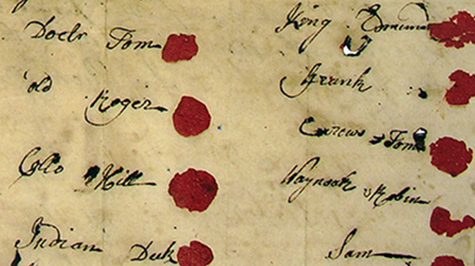 Doctr Tom
old
Roger
Collo Hill
Indian Dick
King Edmund
Frank
Tom
Waynoak Robin
Sam